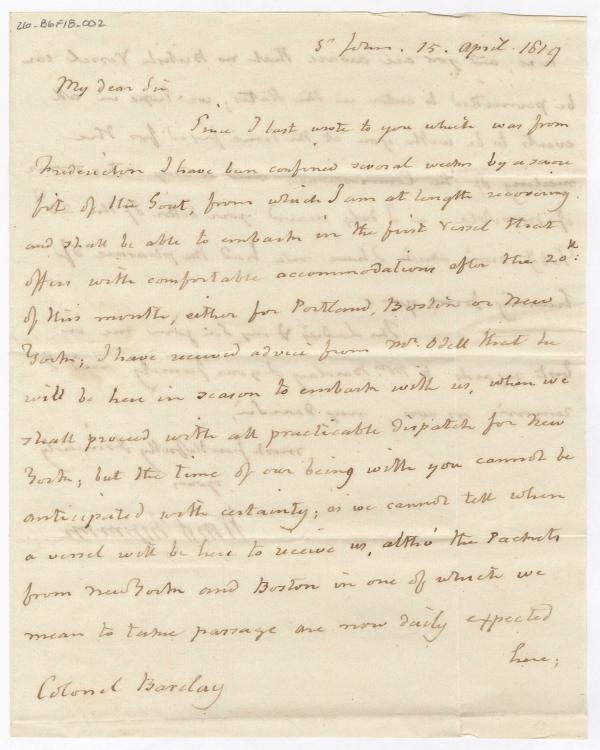 26-B6F18-002
St John. 15. April. 1819
My dear Sir
Since I last wrote to you which was from
Fredericton I have been confined several weeks by a severe
fit of the Gout, from which I am at length recovering
and shall be able to embark in the first Vessel that
offers with comfortable accommodations after the 20th:
of this month, either for Portland, Boston or New
York; I have received advice from Mr. Odell that he
will be here in season to embark with us, when we
shall proceed with all practicable dispatch for New
York; but the time of our being with you cannot be
anticipated with certainty; as we cannot tell when
a vessel will be here to receive us, altho' the Packets
from New York and Boston in one of which we
mean to take passage are now daily expected
here;
Colonel Barclay